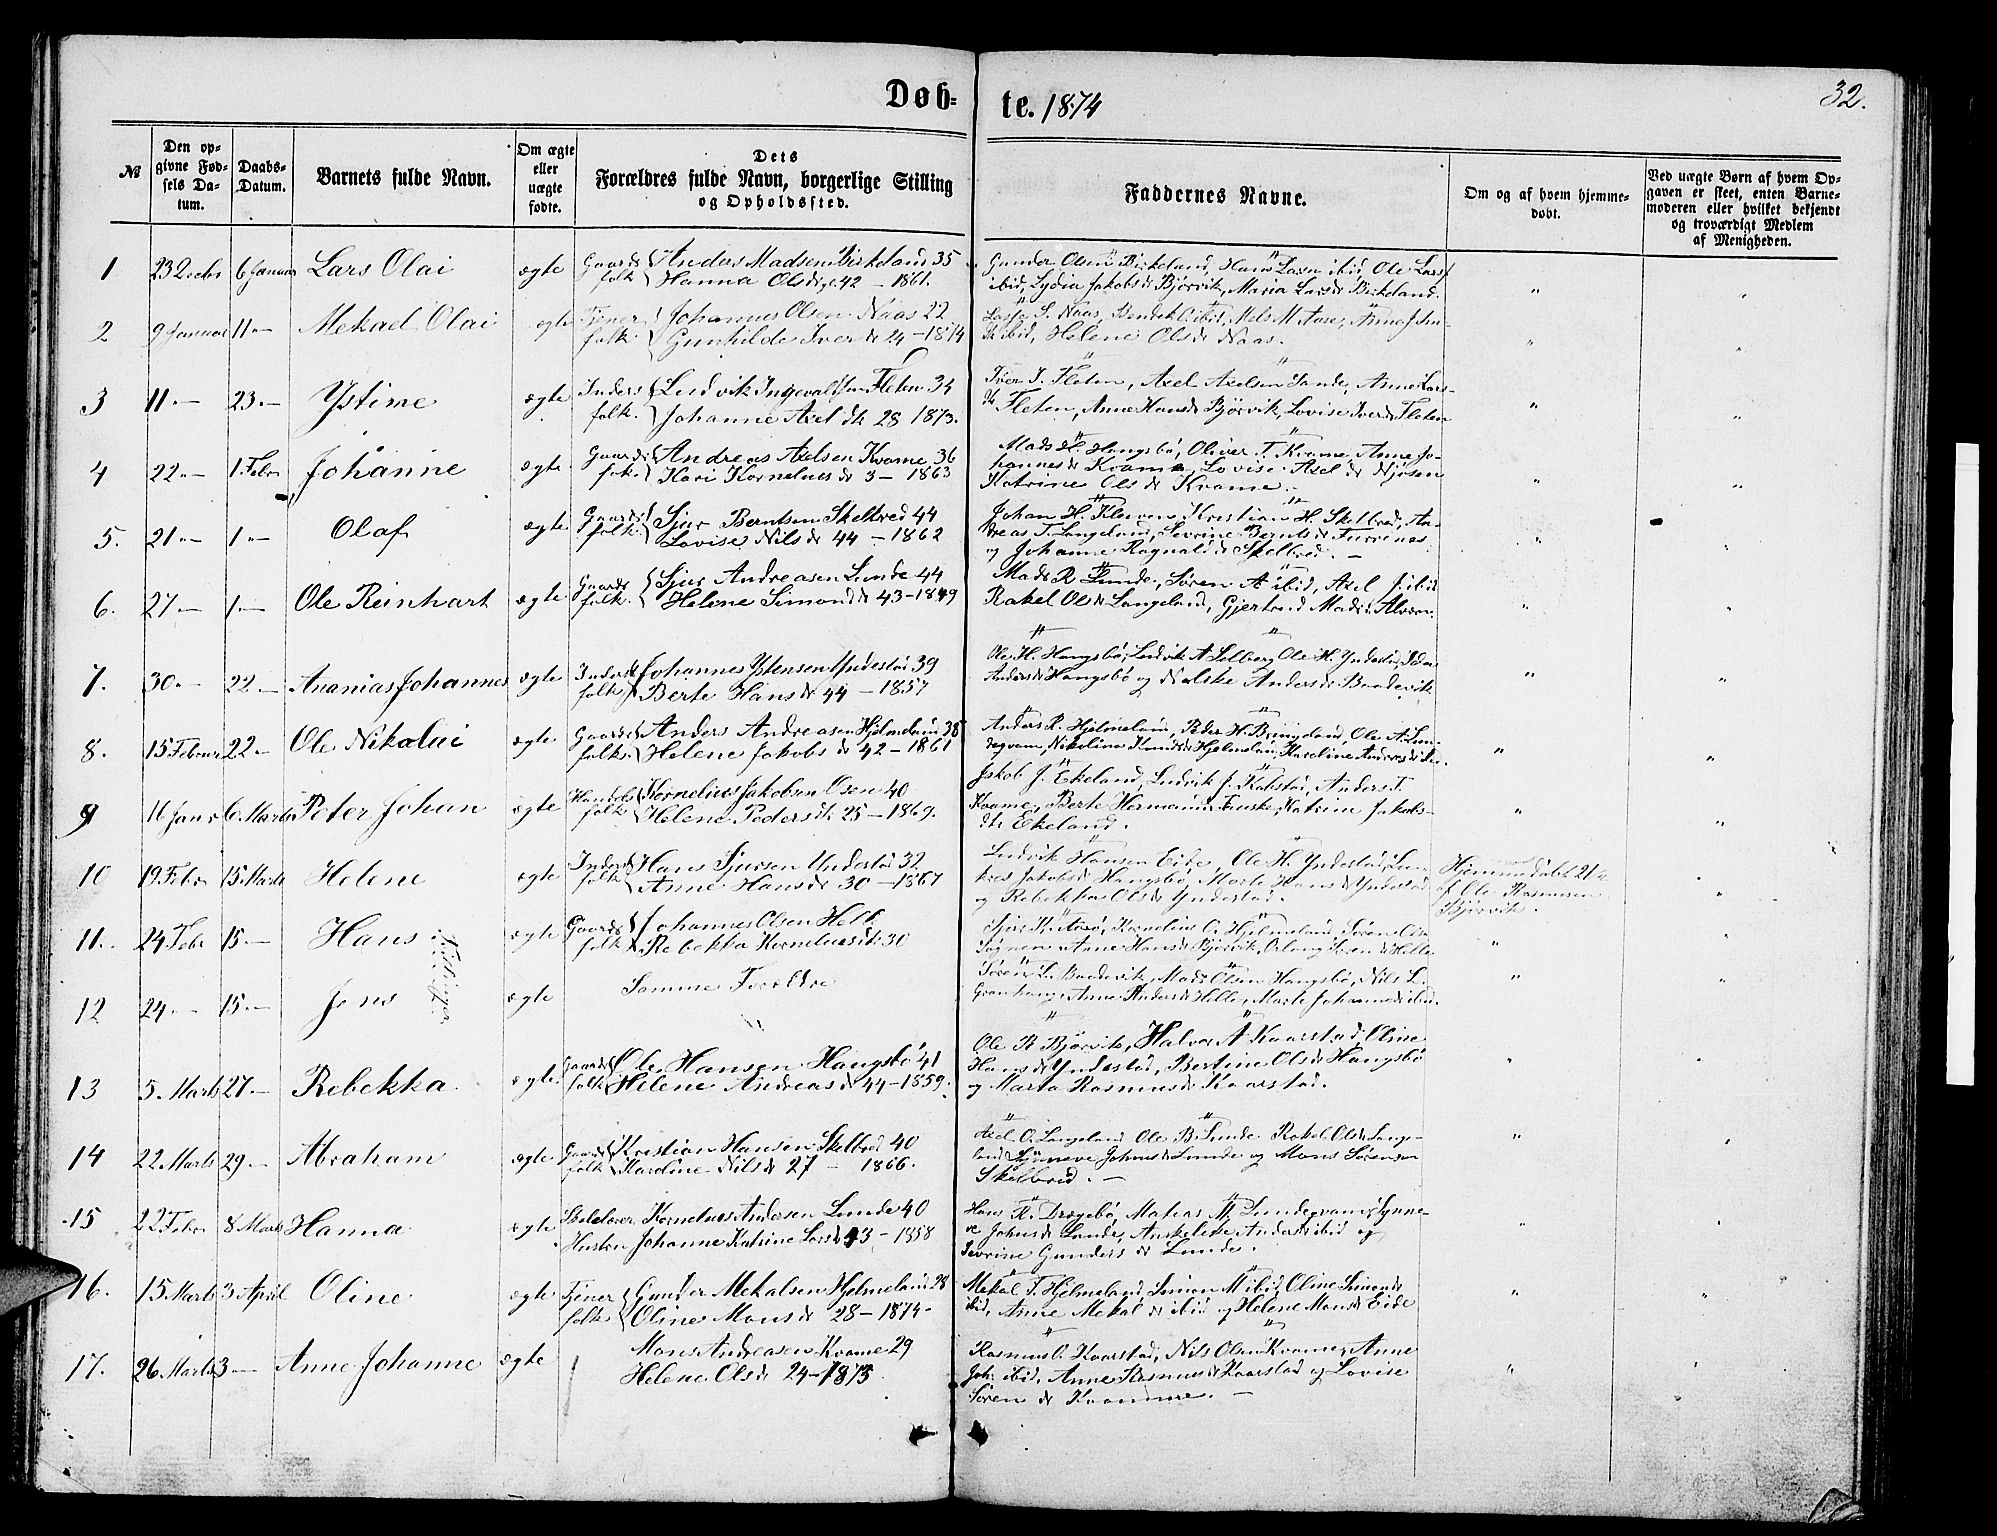 Døb-
te. 1874
32.
№
Den op-
givne Fød-
sels Da-
tum.
Daabs-
Datum.
Barnets fulde Navn.
Om ægte
eller
uægte
fødte.
Dets
Forældres fulde Navn, borgerlige Stilling
og Opholdssted.
Faddernes Navne.
Om og af hvem hjemme-
døbt.
Ved uægte Børn af hvem Op-
gaven er skeet, enten Barne-
moderen eller hvilket bekjendt
og troværdigt Medlem
af Menigheden.
1 23 Decbr 6 Januar Lars Olai ægte Gaards folk Anders Madsen Birkeland 35
Hanna Olsdtr 42 - 1861.
Gunder Olsen Birkeland, Hans Larsn ibid, Ole Lars
ibid, Lydia Jakobsdr Bjørvik, Maria Larsdr Birkeland.
2 9 Januar 11 - Mekael Olai ægte Tjener folk Johannes Olsen Naas 22
Gunhilde Iverdr 24 - 1874
S. Naas, Bendik O. ibid, Nels M. Aase, Anne Joh-
dr ibid, Helene Olsdr Naas.
3 11 - 23 - Ystine ægte Inders folk Ludvik Ingevalsen Fleten 34
Johanne Axeldtr 28 1873.
Iver I. Fleten, Axel Axelsen Sande, Anne Lars-
dtr Fleten, Anne Hansdr Bjørvik, Lovise Iverdr Fleten
4 22 - 1 Febr Johanne ægte Gaards folk. Andreas Axelsen Kvame 36
Kari Korneliusdr 3 - 1863
Mads H. Hangsbø, Oliver T. Kvame, Anne Jo-
hannesdr Kvame, Lovise Axeldr
Katrine Olsdr Kvame. -
5. 21 - 1 - Olaf ægte Gaards folk. Sjur Berntsen Skelbred 44
Lovise Nilsdr 44 - 1862
Johan H. Kleiven, Kristian H. Skelbred, An-
dreas T. Langeland, Sevrine Berntsdr Furenes
og Johanne Ragnalddr Skelbred. -
6. 27 - 1 - Ole Reinhart ægte Gaards folk. Sjur Andreasen Lunde 44
Helene Simondr 43 - 1849
Mads R. Lunde, Søren A. ibid, Axel J. ibid
Rakel Olsdr Langeland, Gjertrud Madsdr
7. 30 - 22 - Ananias Johannes ægte Inders folk Johannes Ystensen Yndestad 39
Berte Hansdr 44 - 1857
Ole H. Hangsbø, Ludvik A. Solberg, Ole H. Yndestad,
Andersdr Hangsbø og Andersdr Baadevik
8. 15 Februar 22 - Ole Nikolai ægte Gaards folk. Anders Andreasen Hjelmeland 38
Helene Jakobsdr 42 - 1861
Anders R. Hjelmeland, Peder H. Bringeland, Ole A. Lun-
degvam, Nikoline Knudsdr Hjelmeland, Karoline Andreasdr
9 16 Janr 6 Marts Peter Johan ægte Handels folk Kornelius Jakobsen Osen 40
Helene Pedersdtr 25 - 1869.
Jakob J. Ekeland, Ludvik J. Kalstad, Anders T.
Kvame, Berte Hermansdr, Katrine Jakobs-
dtr Ekeland.
10 19 Febr 15 Marts Helene ægte Inders folk Hans Sjursen Yndestad 32
Anne Hansdr 30 - 1867
Ludvik Hansen Eide, Ole H. Yndestad,
Jakobsdr Hangsbø, Marte Hansdr Yndestad
og Rebekka Olsdr Yndestad.
Hjemmedøbt 21
af Ole Rasmusen
Bjørvik.
11. 24 Febr 15 - Hans ægte Gaards folk Johannes Olsen Helle
Rebekka Korneliusdtr 30
Tvillinger
Kornelius O. Hjelmeland, Søren Ols
Anne Hansdr Bjørvik, Helle
12 24 - 15 - Jens ægte Samme Forældre
Søren L. Baadevik, Mads Olsen Hangsbø, Nils L.
Anne Andersdr Helle, Marte Johannesdr ibid.
13 5. Marts 27 - Rebekka ægte Gaards folk Ole Hansen Hangsbø 41
Helene Andreasdr 44 - 1859.
Ole R. Bjørvik, Halvor A. Kaarstad, Oline
Hansdr Yndestad, Bertine Olsdr Hangsbø
og Marta Rasmusdr Kaarstad.
14 22 Marts 29 - Abraham ægte Gaards folk Kristian Hansen Skelbred 40
Karoline Nilsdr 27 - 1866.
Axel O. Langeland, Ole B. Lunde, Rakel Olsdr Lange-
land, Synneve Johnsdr Lunde og Mons Sørensen
Skelbred. -
15 22 Febr 8 Marts Hanna ægte Skolelærer Kornelius Andersen Lunde 40
Hustru Johanne Katrine Larsdr 43 - 1858
Hans R. Dragebø, Matias M. Lundegvam, Synne-
ve Johnsdr Lunde, Andersdr ibid og
Sevrine Gundersdr Lunde.
16. 15 Marts 3 April Oline ægte Tjener folk Gunder Mekalsen Hjelmeland 28
Oline Monsdr 28 - 1874 -
Mekal T. Hjelmeland, Simon M. ibid, Oline Simonsdr
ibid, Anne Mekaldr ibid og Helene Monsdr Eide
17. 26 Marts 3 - Anne Johanne ægte Mons Andreasen Kvame 29
Helene Olsdr 24 - 1873
Rasmus O. Kaarstad, Nils Olsen Kvame, Anne
Joh. ibid, Anne Rasmusdr Kaarstad og Lovise
Sørendr Kvamme. -